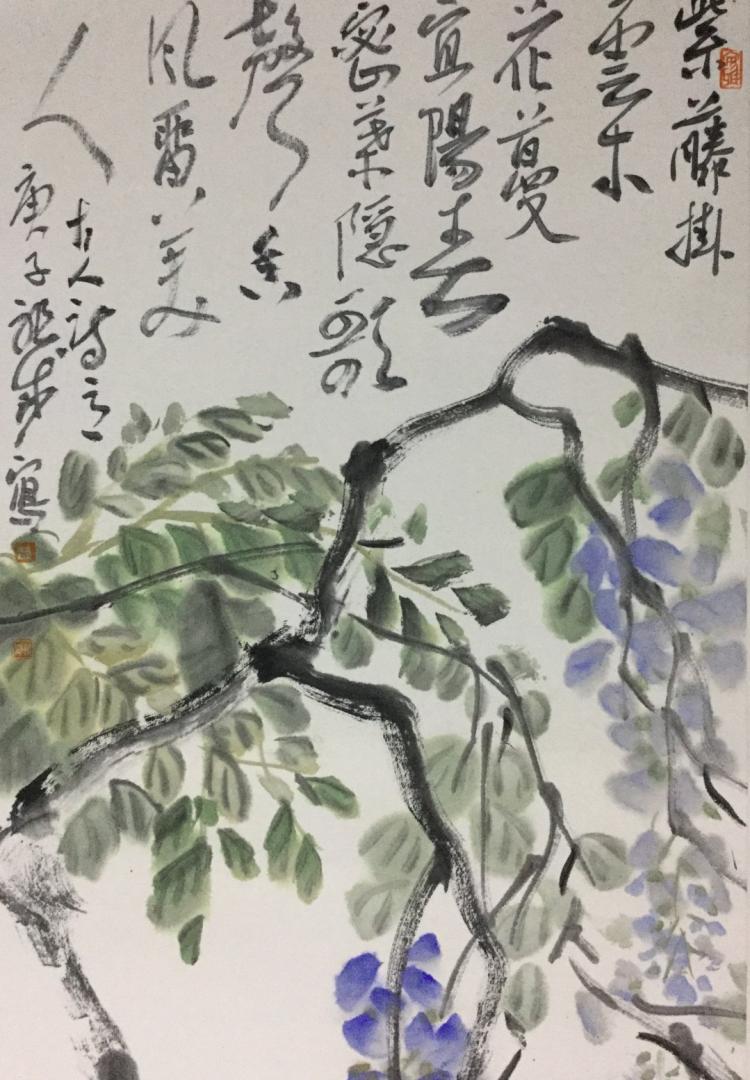 紫藤掛
雲木
花蔓
宜陽春
密葉隱歌
聲香
風留美
人
古人詩
庚子 寫